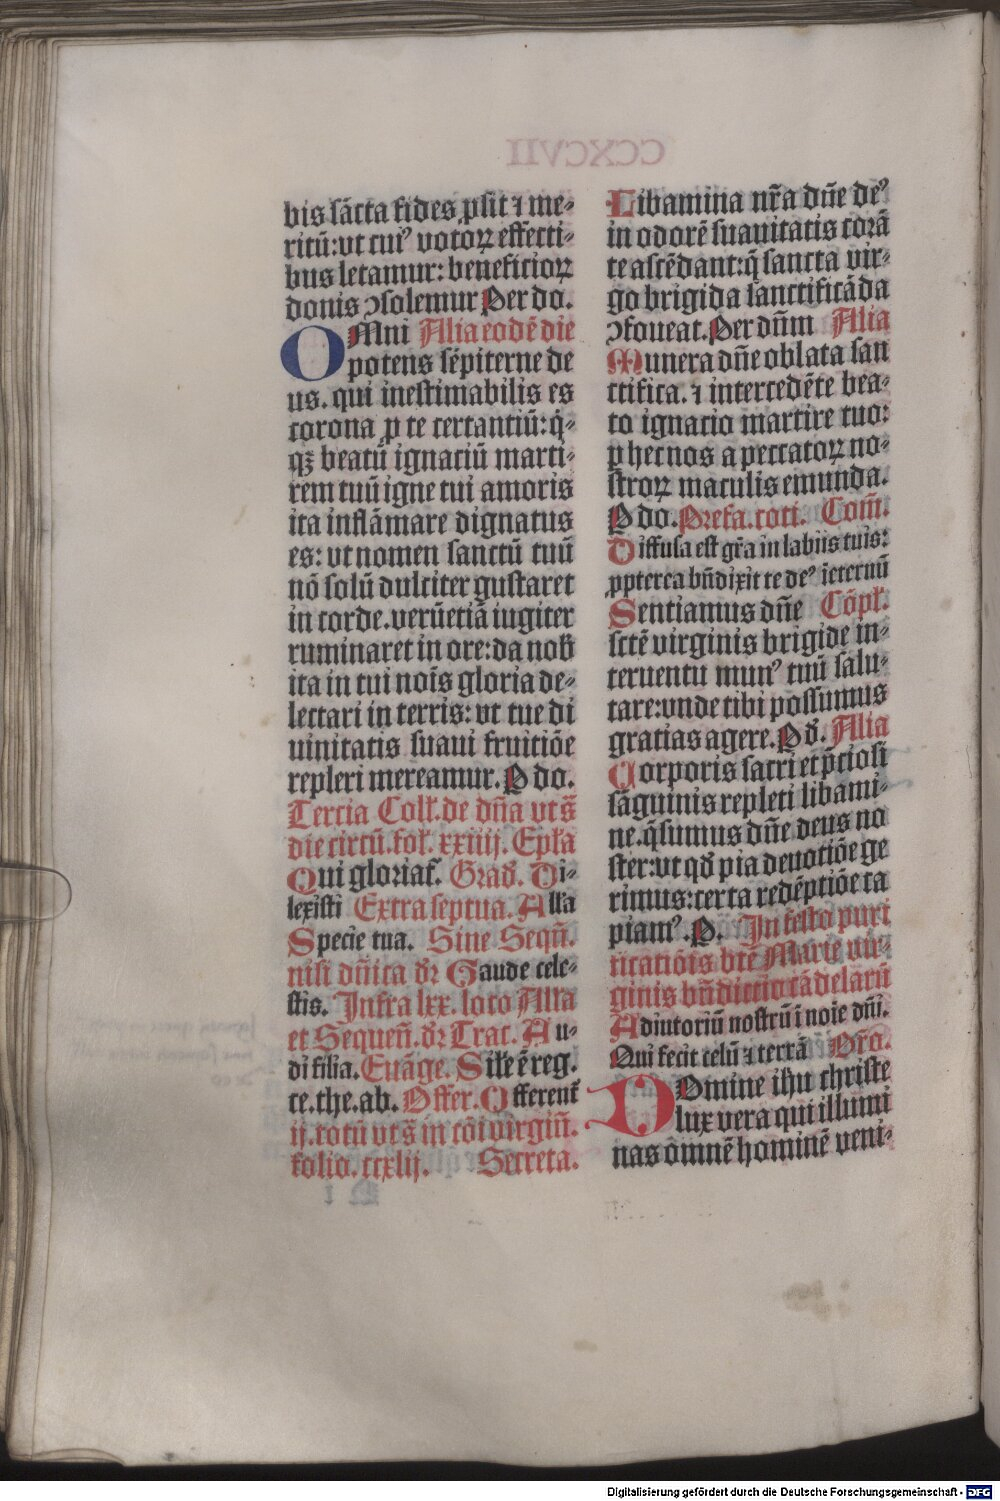 bis sãcta fides ꝓsit ⁊ me⸗
ritũ: vt tuiꝰ votoꝝ effecti⸗
bus letamur: beneficioꝝ
donis ꝯsolemur Per do.
OMni Alia eodẽ die
potens sẽpiterne de
us. qui inestimabilis es
corona ꝓ te certantiũ: q̇⸗
qꝫ beatũ ignaciũ marti⸗
rem tuũ igne tui amoris
ita inflãmare dignatus
es: vt nomen sanctũ tuũ
nõ solũ dulciter gustaret
in corde. verũetiã iugiter
ruminaret in ore: da nob̃
ita in tui nois̃ gloria de⸗
lectari in terris: vt tue di
uinitatis suaui fruitiõe
repleri mereamur. P do.
Tercia Coll̃. de dña vt s̃
die circũ. fol̃. xxiiij. Epl̃a
Qui gloriat̃. Grad̃. Di⸗
lexisti Extra septua. All̃a
Specie tua. Sine Seqũ.
nisi dñica dr̃ Gaude cele⸗
stis. Infra lxx. loco All̃a
et Sequeñ. dr̃ Trac. Au⸗
di filia. Euãge. Sil̃e ẽ reg.
ce. the. ab. Offer. Offerent̃
ij. totũ vt s̃ in cõi virgiñ.
folio. ccxlij. Secreta.
Libamina nr̃a dñe deꝰ
in odorẽ suauitatis corã
te ascẽdant: q̃ sancta vir⸗
go brigida sanctificãda
ꝯfoueat. Per dñm Alia
Munera dñe oblata san
ctifica. ⁊ intercedẽte bea⸗
to ignacio martire tuo:
ꝑ hec nos a peccatoꝝ no⸗
stroꝝ maculis emunda.
P do. Prefa. coti. Com̃.
Diffusa est gr̃a in labiis tuis:
ꝓpterea bñdixit te deꝰ ĩeternũ
Sentiamus dñe Cõpl̃.
sctẽ virginis brigide in⸗
teruentu munꝰ tuũ salu⸗
tare: vnde tibi possumus
gratias agere. P d̃. Alia
Corporis sacri et p̃ciosi
sãguinis repleti libami⸗
ne. q̃sumus dñe deus no
ster: vt qd̃ pia deuotiõe ge
rimus: certa redẽptiõe ca
piamꝰ. P. In festo puri
ficatiõis btẽ Marie vir⸗
ginis bñdictio cãdelarũ
Adiutoriũ nostrũ ĩ noie dñi.
Qui fecit celũ ⁊ terrã Or̃o.
DOmine ihũ christe
lux vera qui illumi
nas õmnẽ hominẽ veni⸗
Digitalisierung gefördert durch die Deutsche Forschungsgemeinschaft - DFG